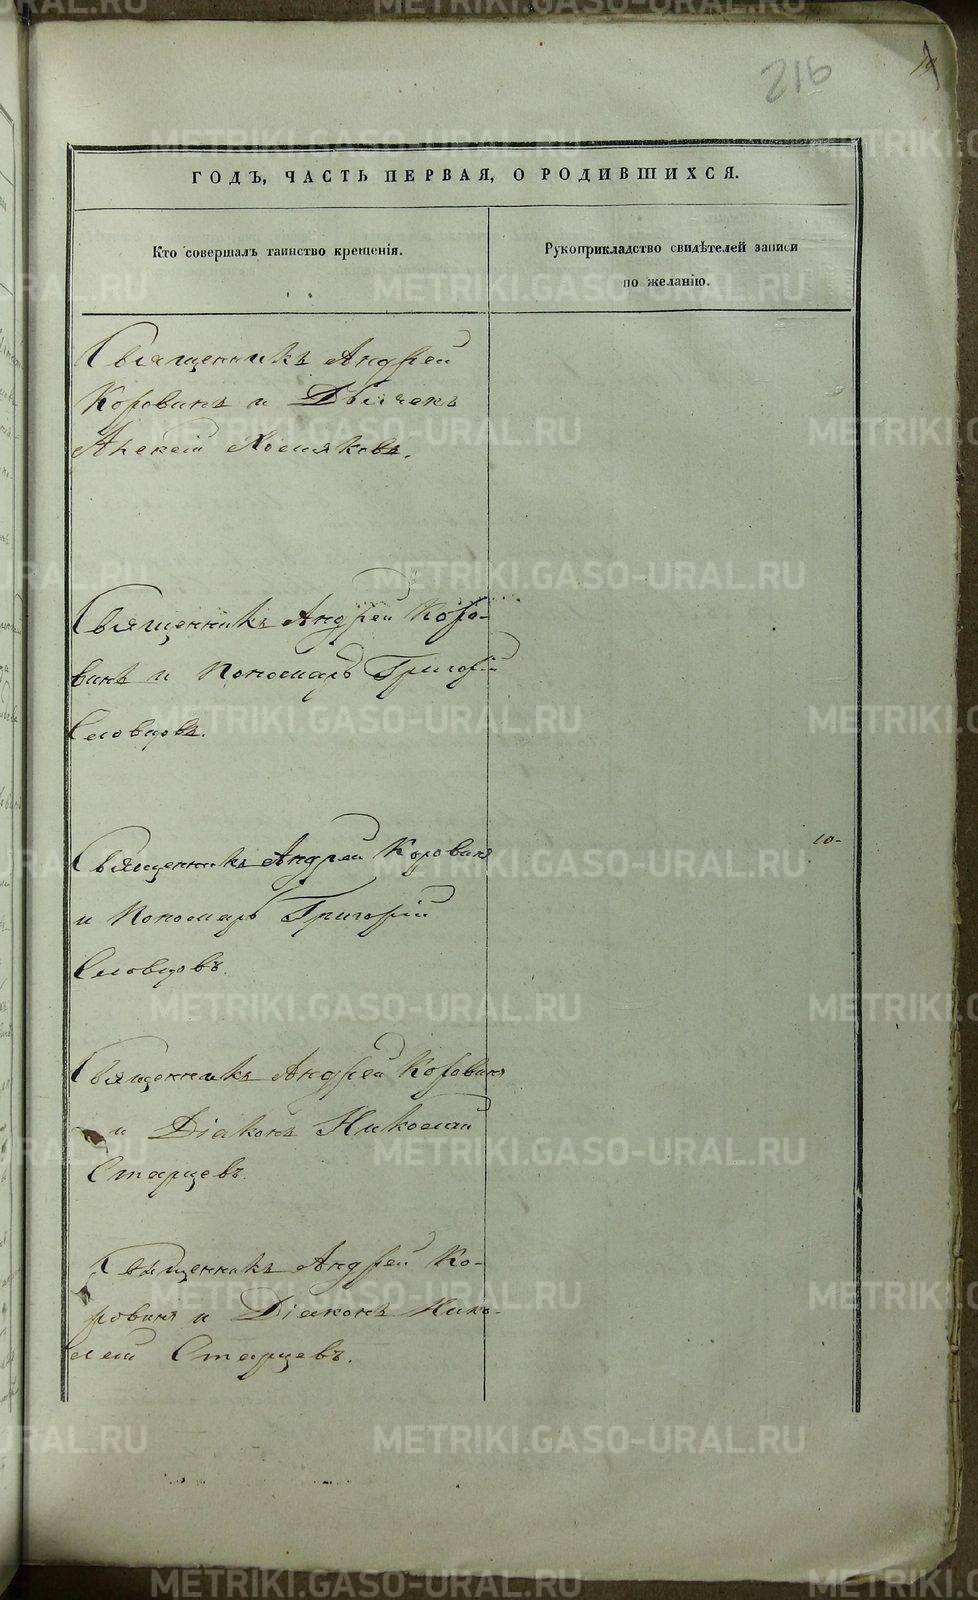 216
ГОДЪ, ЧАСТЬ ПЕРВАЯ, О РОДИВШИХСЯ.
Кто совершалъ таинство крещенія.
Рукоприкладство свидѣтелей записи
по желанію.
Священникъ Андрей
Коровинъ и Дьячекъ
Алексій Хомяковъ.
Священникъ Андрей Коро-
винъ и Пономарь Григорій
Словцовъ.
Священникъ Андрей Коровинъ
и Пономарь Григорій
Словцовъ.
10-
Священникъ Андрей Коровинъ
и Діаконъ Николай
Старцевъ.
Священникъ Андрей Ко-
ровинъ и Діаконъ Нико-
лай Старцевъ.
METRIKI.GASO-URAL.RU